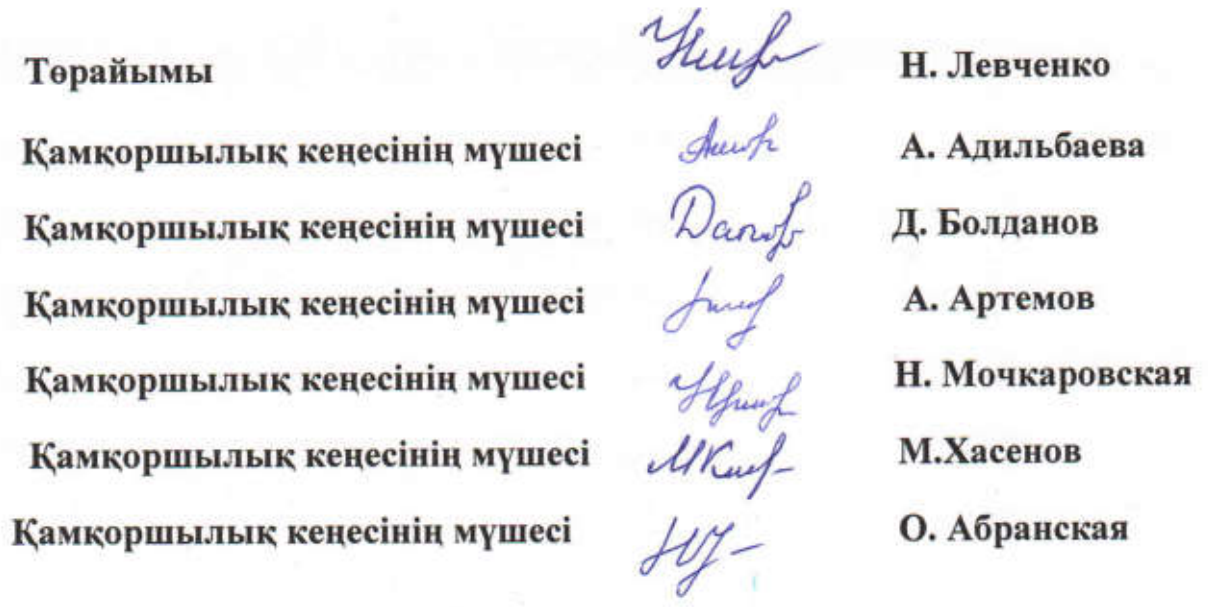 Төрайымы Н. Левченко
Қамқоршылық кеңесінің мүшесі А. Адильбаева
Қамқоршылық кеңесінің мүшесі Д. Болданов
Қамқоршылық кеңесінің мүшесі А. Артемов
Қамқоршылық кеңесінің мүшесі Н. Мочкаровская
Қамқоршылық кеңесінің мүшесі М.Хасенов
Қамқоршылық кеңесінің мүшесі О. Абранская